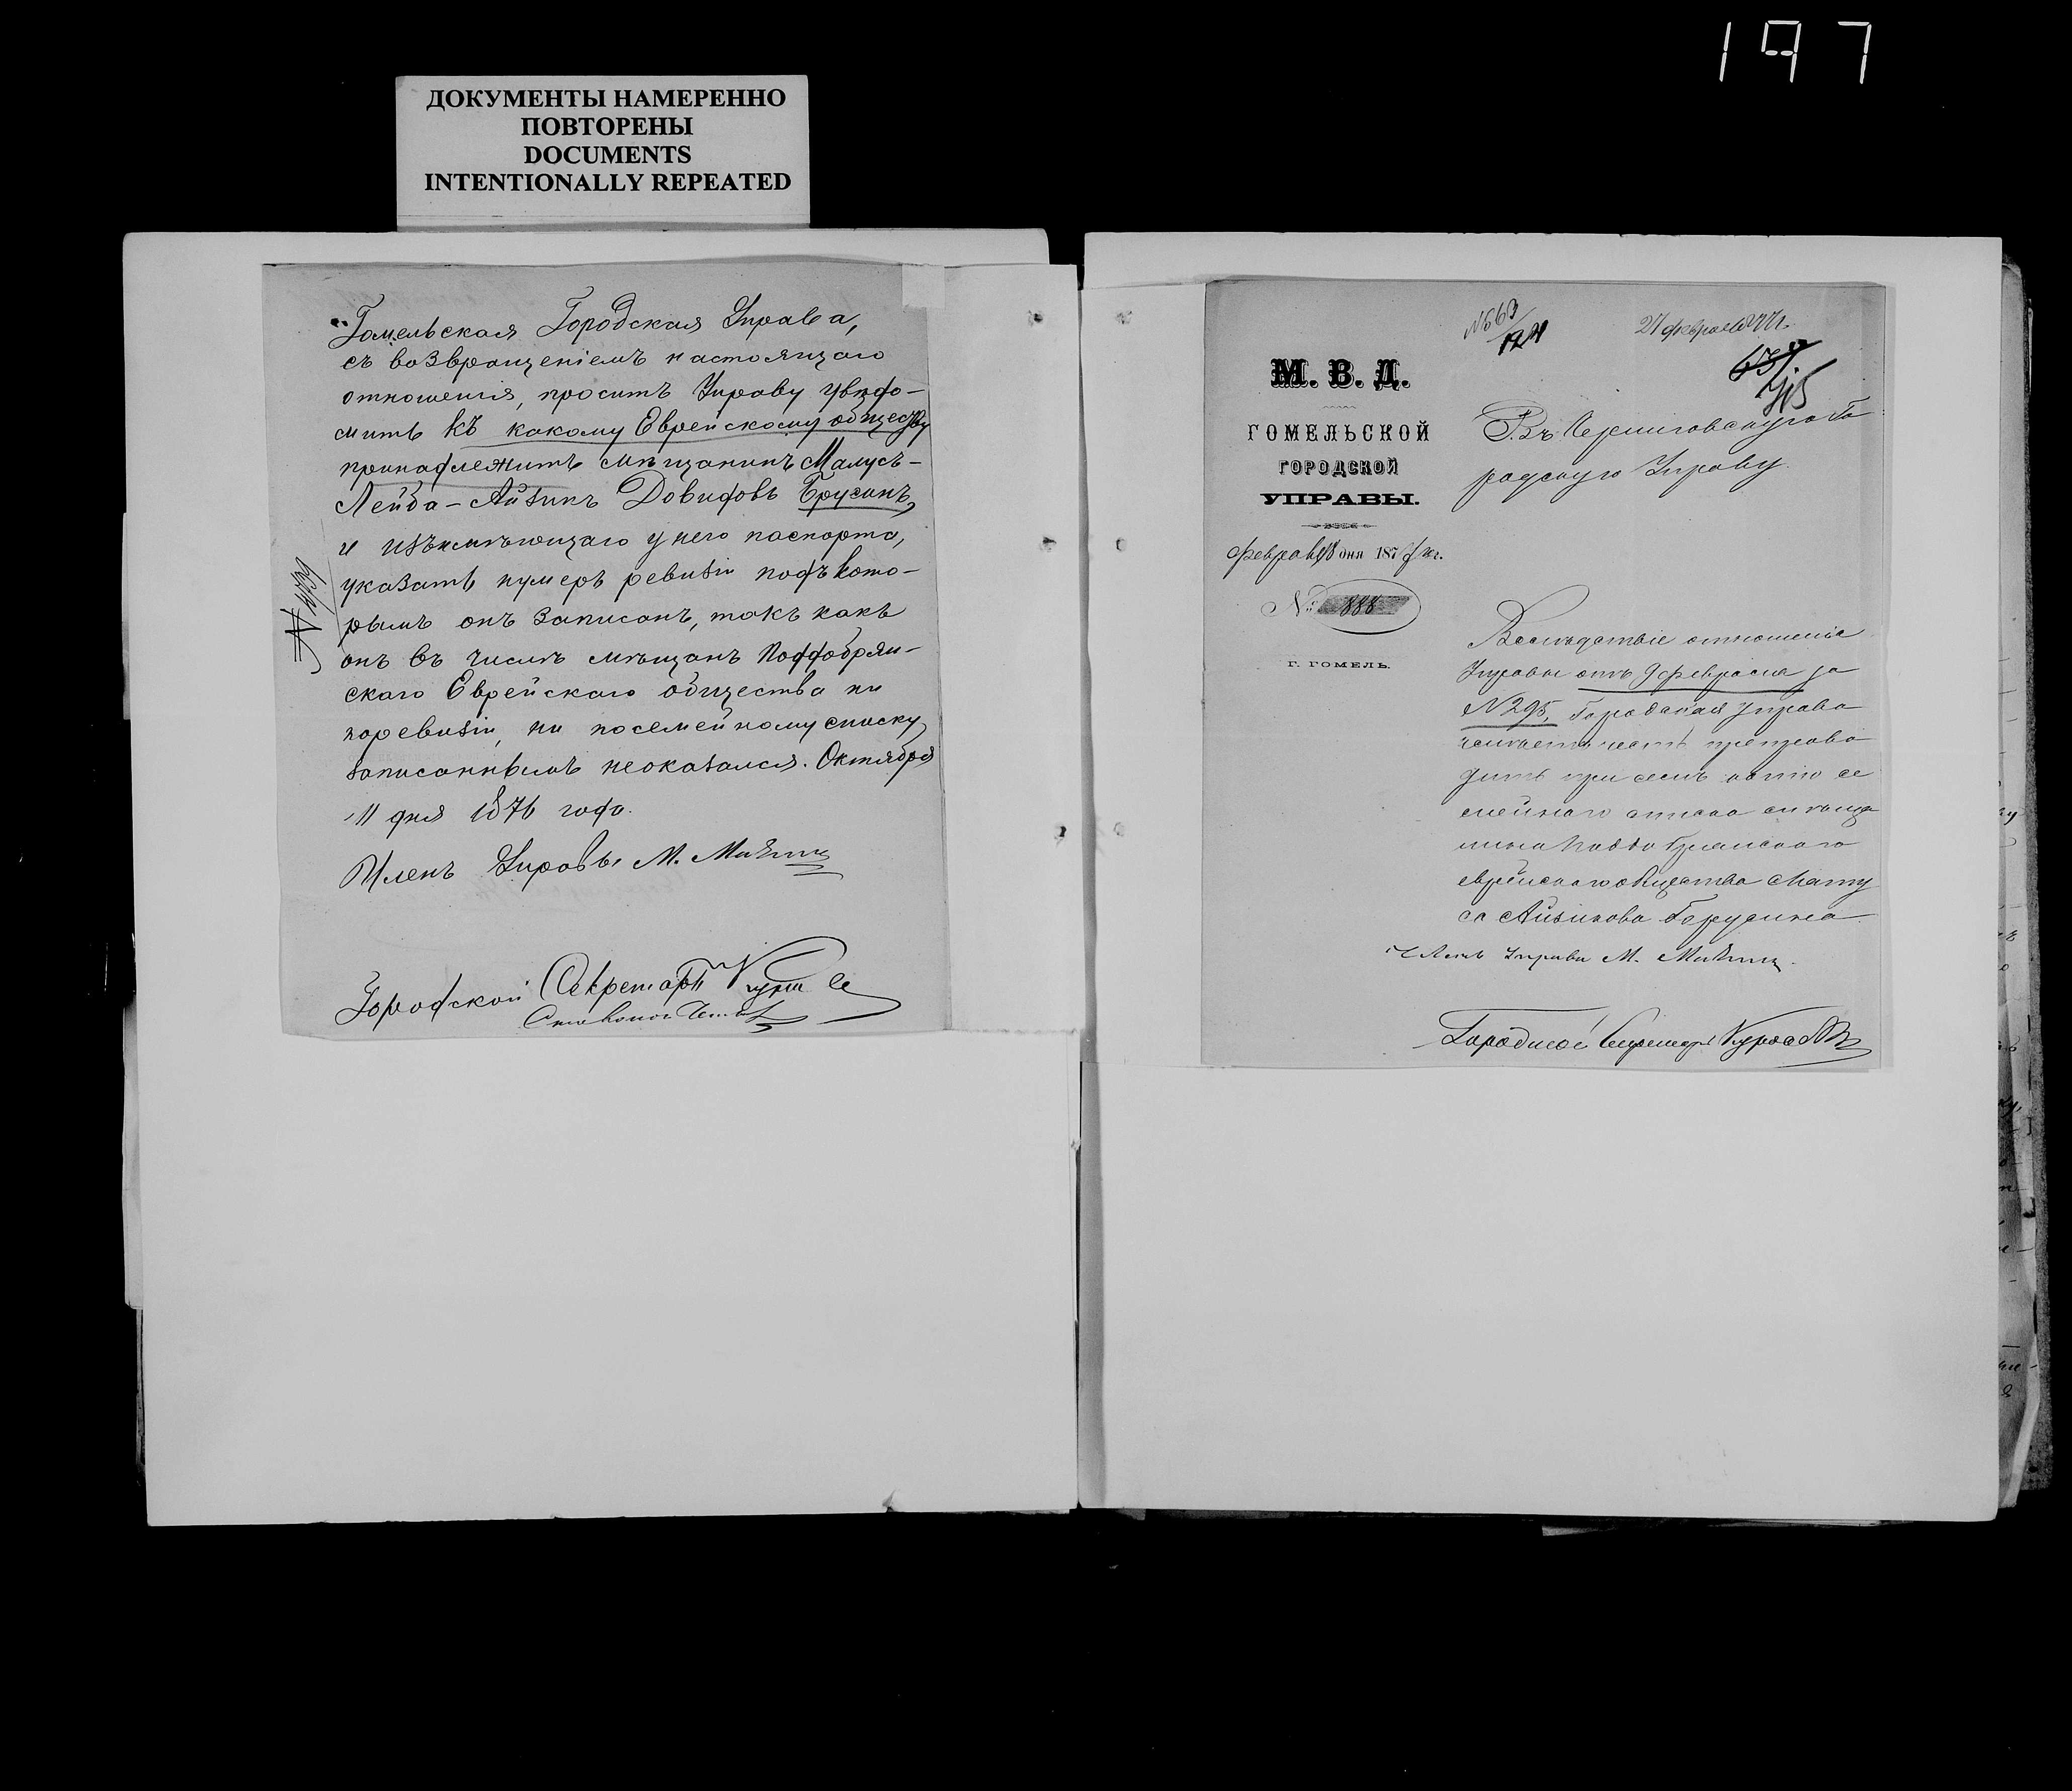 197
ДОКУМЕНТЫ НАМЕРЕННО
ПОВТОРЕНЫ
DOCUMENTS
INTENTIONALLY REPEATED
Гомельская Городская Управа,
съ возвращеніемъ настоящаго
отношенія, проситъ Управу увѣдо-
мить къ какому Еврейскому обществу
принадлежитъ мѣщанинъ Матусъ-
Лейба-Айзикъ Довидовъ Брусинъ,
и изъ имѣющаго у него паспорта,
указать нумеръ ревизіи подъ кото-
рымъ онъ записанъ, такъ какъ
онъ въ числѣ мѣщанъ Поддобрян-
скаго Еврейскаго общества ни
поревизіи, ни посемейному списку
записаннымъ неоказался. Октября
11 дня 1876 года.
Членъ Управы М.
Городской Секретарь
№ 63
27 февраля 77 г.
М. В. Д.
ГОМЕЛЬСКОЙ
ГОРОДСКОЙ
УПРАВЫ.
Февраля 18 дня 1877 г.
№ 888
Г. ГОМЕЛЬ.
Въ Черниговскую Го
родскую Управу.
Вслѣдствіе отношенія
Управы отъ 9 февраля за
№ 295, Городская Управа
имѣетъ честь препрово
дить при семъ копію се
мейнаго списка мѣща
нина Поддобрянскаго
еврейскаго общества Мату
са Айзикова Борусина
Членъ Управы М.
Городской Секретарь